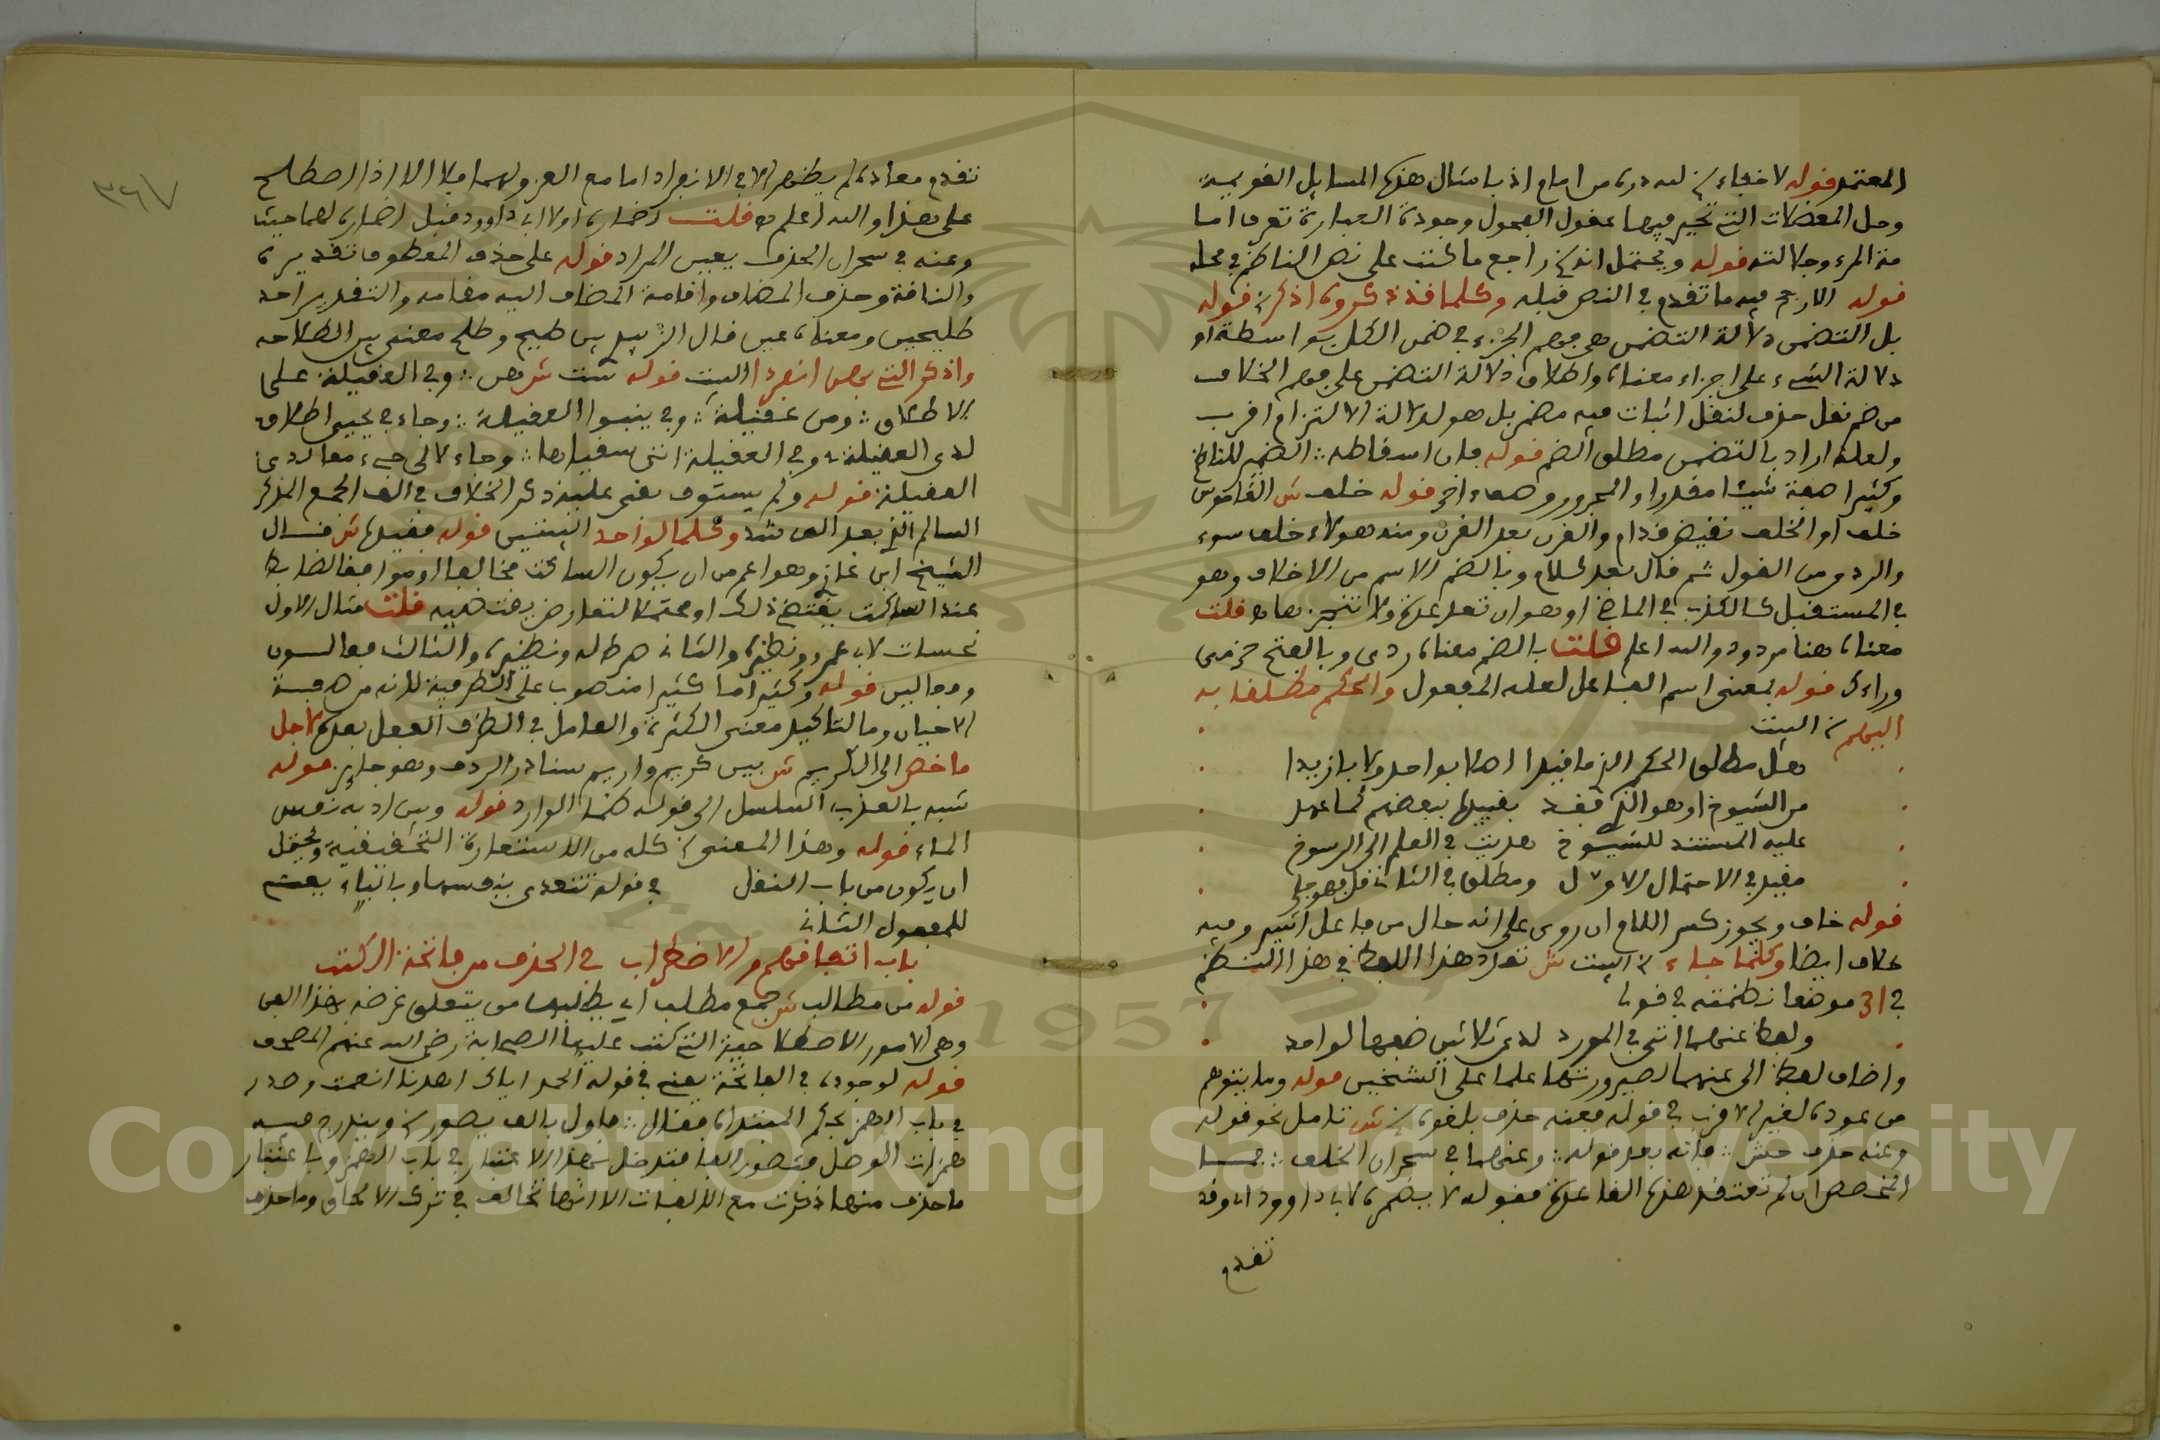 المعتمد قوله لا خفاء لله دره من امام اذ بامثال هذه المسايل الغويصة
وحل المعضلات التي تحير فيها عقول الفحول وجودة العبارة تعرف اما
مة المرء وجلالته قوله ويحتمل انه راجع ما كنت على نص الناظم في محله
قوله الارجح فيه ما تقدم في النص قبله وكلما قد ذكروه اذكر قوله
بل التضمن دلالة التضمن هي فهم الجزء في ضمن الكل بواسطة او
دلالة الشيء على اجزاء معناه واطلاق دلالة التضمن على فهم الخلاف
من ضم نقل حذف لنقل اثبات فيه مضمر بل هو دلالة الالتزام اقرب
ولعله اراد بالتضمن مطلق الضم قوله فان اسقاطه الضمير للناظم
وكثيرا هبة شيئا مقدرا والمجرور وهماء اخر قوله خلف ش القاموس
خلف او الخلف نقيض قدام والقرن بعد القرن ومنه هولاء خلف سوء
والردي من القول ثم قال بعد كلام وبالضم الاسم من الاخلاف وهو
في المستقبل كالكذب في الماضي او هو ان تعد عدة ولا تنجزها قلت
معناه هنا مردود والله اعلم قلت بالضم معناه ردي وبالفتح خر من
وراءك قوله بمعنى اسم الفاعل لعله المفعول والحكم مطلقا به
اليهم البيت
هل مطلق الحكم الذي ما قيدا اصلا بواحد ولا باز يدا
من الشيوخ او هو الذي فقد بقيدها ببعضهم كما عهد
عليه المستند للشيوخ هديت في العلم الى الرسوخ
مقيد في الاحتمال الاول ومطلق في الثاني قل فهو جلي
قوله خاف ويجوز كسر اللام ان روي على انه حال من فاعل اشير وفيه
خلاف ايضا وكلما جاء البيت ش تعدد هذا اللفظ في هذا النظم
في 31 موضعا نظمته في قولي
ولفظ عنهما اتى في المورد لدى ثلاثين ضعها لواحد
واضاف لفظ الى عنهما لصيرورتها علما على الشخين قوله وما يتوهم
من عموده لغير الاقرب في قوله فعنه حذف بلغوه ش تامل نحو قوله
وعنه حذف حتش فانه بعد قوله وعنهما في سحران الخلف فيسا
التخصص ان لم تعتقد هذه القاعدة فقوله لا يضمره لابي داوود اوقد
تقدم
تقدم معاده لم يظهر الا في الانفراد اما مع الغير ولهما فلا الا اذا اصطلح
على هذا والله اعلم قلت اضماره اولا ابي داوود قبل اضماره لهما حيث
وعنه في سحران الحذف يعين المراد قوله على حذف المعطوف تقديره
والناقة وحذف المضاف واقامة المضاف اليه مقامه والتقدير احد
طليحين ومعناه عين قال الزبيدي طيح وطلح معنى بين الطلاحة
واذكر التي بهن انفردا البيت قوله ست ش هن وفي العقيلة على
الاطلاق ومن عقيلة وفي ينبوا العقيلة وجاء في يحيى اطلاق
لدى العقيلة وفي العقيلة اتى سقياها وجاء لالى جيء معا لدى
العقيلة قوله ولم يستوف بقي عليه ذكر الخلاف في الف الجمع المذكر
السالم الذي بعد الف شد وكلما لواحد البيتين قوله فقيدها ش قال
الشيخ ابن غازي وهو اعم من ان يكون الساكت مخالفا او موافقا لضابط
عند الساكت يقتضي ذلك او محتملا لتعارض يقتضيه قلت مثال الاول
نحسات لابي عمرو ونظيره والثاني هرطاله ونظيره والثالث فمالسون
ومجالس قوله وكثيرا ما كثيرا منصوب على الظرفية للزنه من صفة
الاحيان وما لتاكيد معنى الكثرة والعامل في الظرف الفعل بعده لاجل
ما خص الى الكريم ش بين كريم واريم سناد الردف وهو جايز قوله
شبه بالعذب السلسل الى قوله هما الوارد قوله ومن اد به نفس
الماء قوله وهذا المعنى كله من الاستعارة التحقيقية ويحتمل
ان يكون من باب النقل في قوله تتعدى بنفسها وبالياء بعت
للمفعول الثاني
باب اتفاقهم والاضطراب في الحذف من فاتحة الكتاب
قوله من مطالب ش جمع مطلب اي يطلبها من يتعلق غرضه بهذا الفن
وهي الامور الاصطلاحية التي كتبت عليها الصحابة رضي الله عنهم المصحف
قوله لوجوده في الفاتحة يعني في قوله الحمد اياك اهدنا انعمت وصدر
في باب الهمز بحكم المبتداه فقال فاول بالف يصور ويندرج فيه
همزات الوصل فتصور الفا فتدخل بهذا الاعتبار في باب الهمز وباعتبار
ما حذف منها ذكرت مع الالفات الا انها تخالف في ترك الالحاق وما حذف
٣٦٧
Copyright © King Saud University
1957